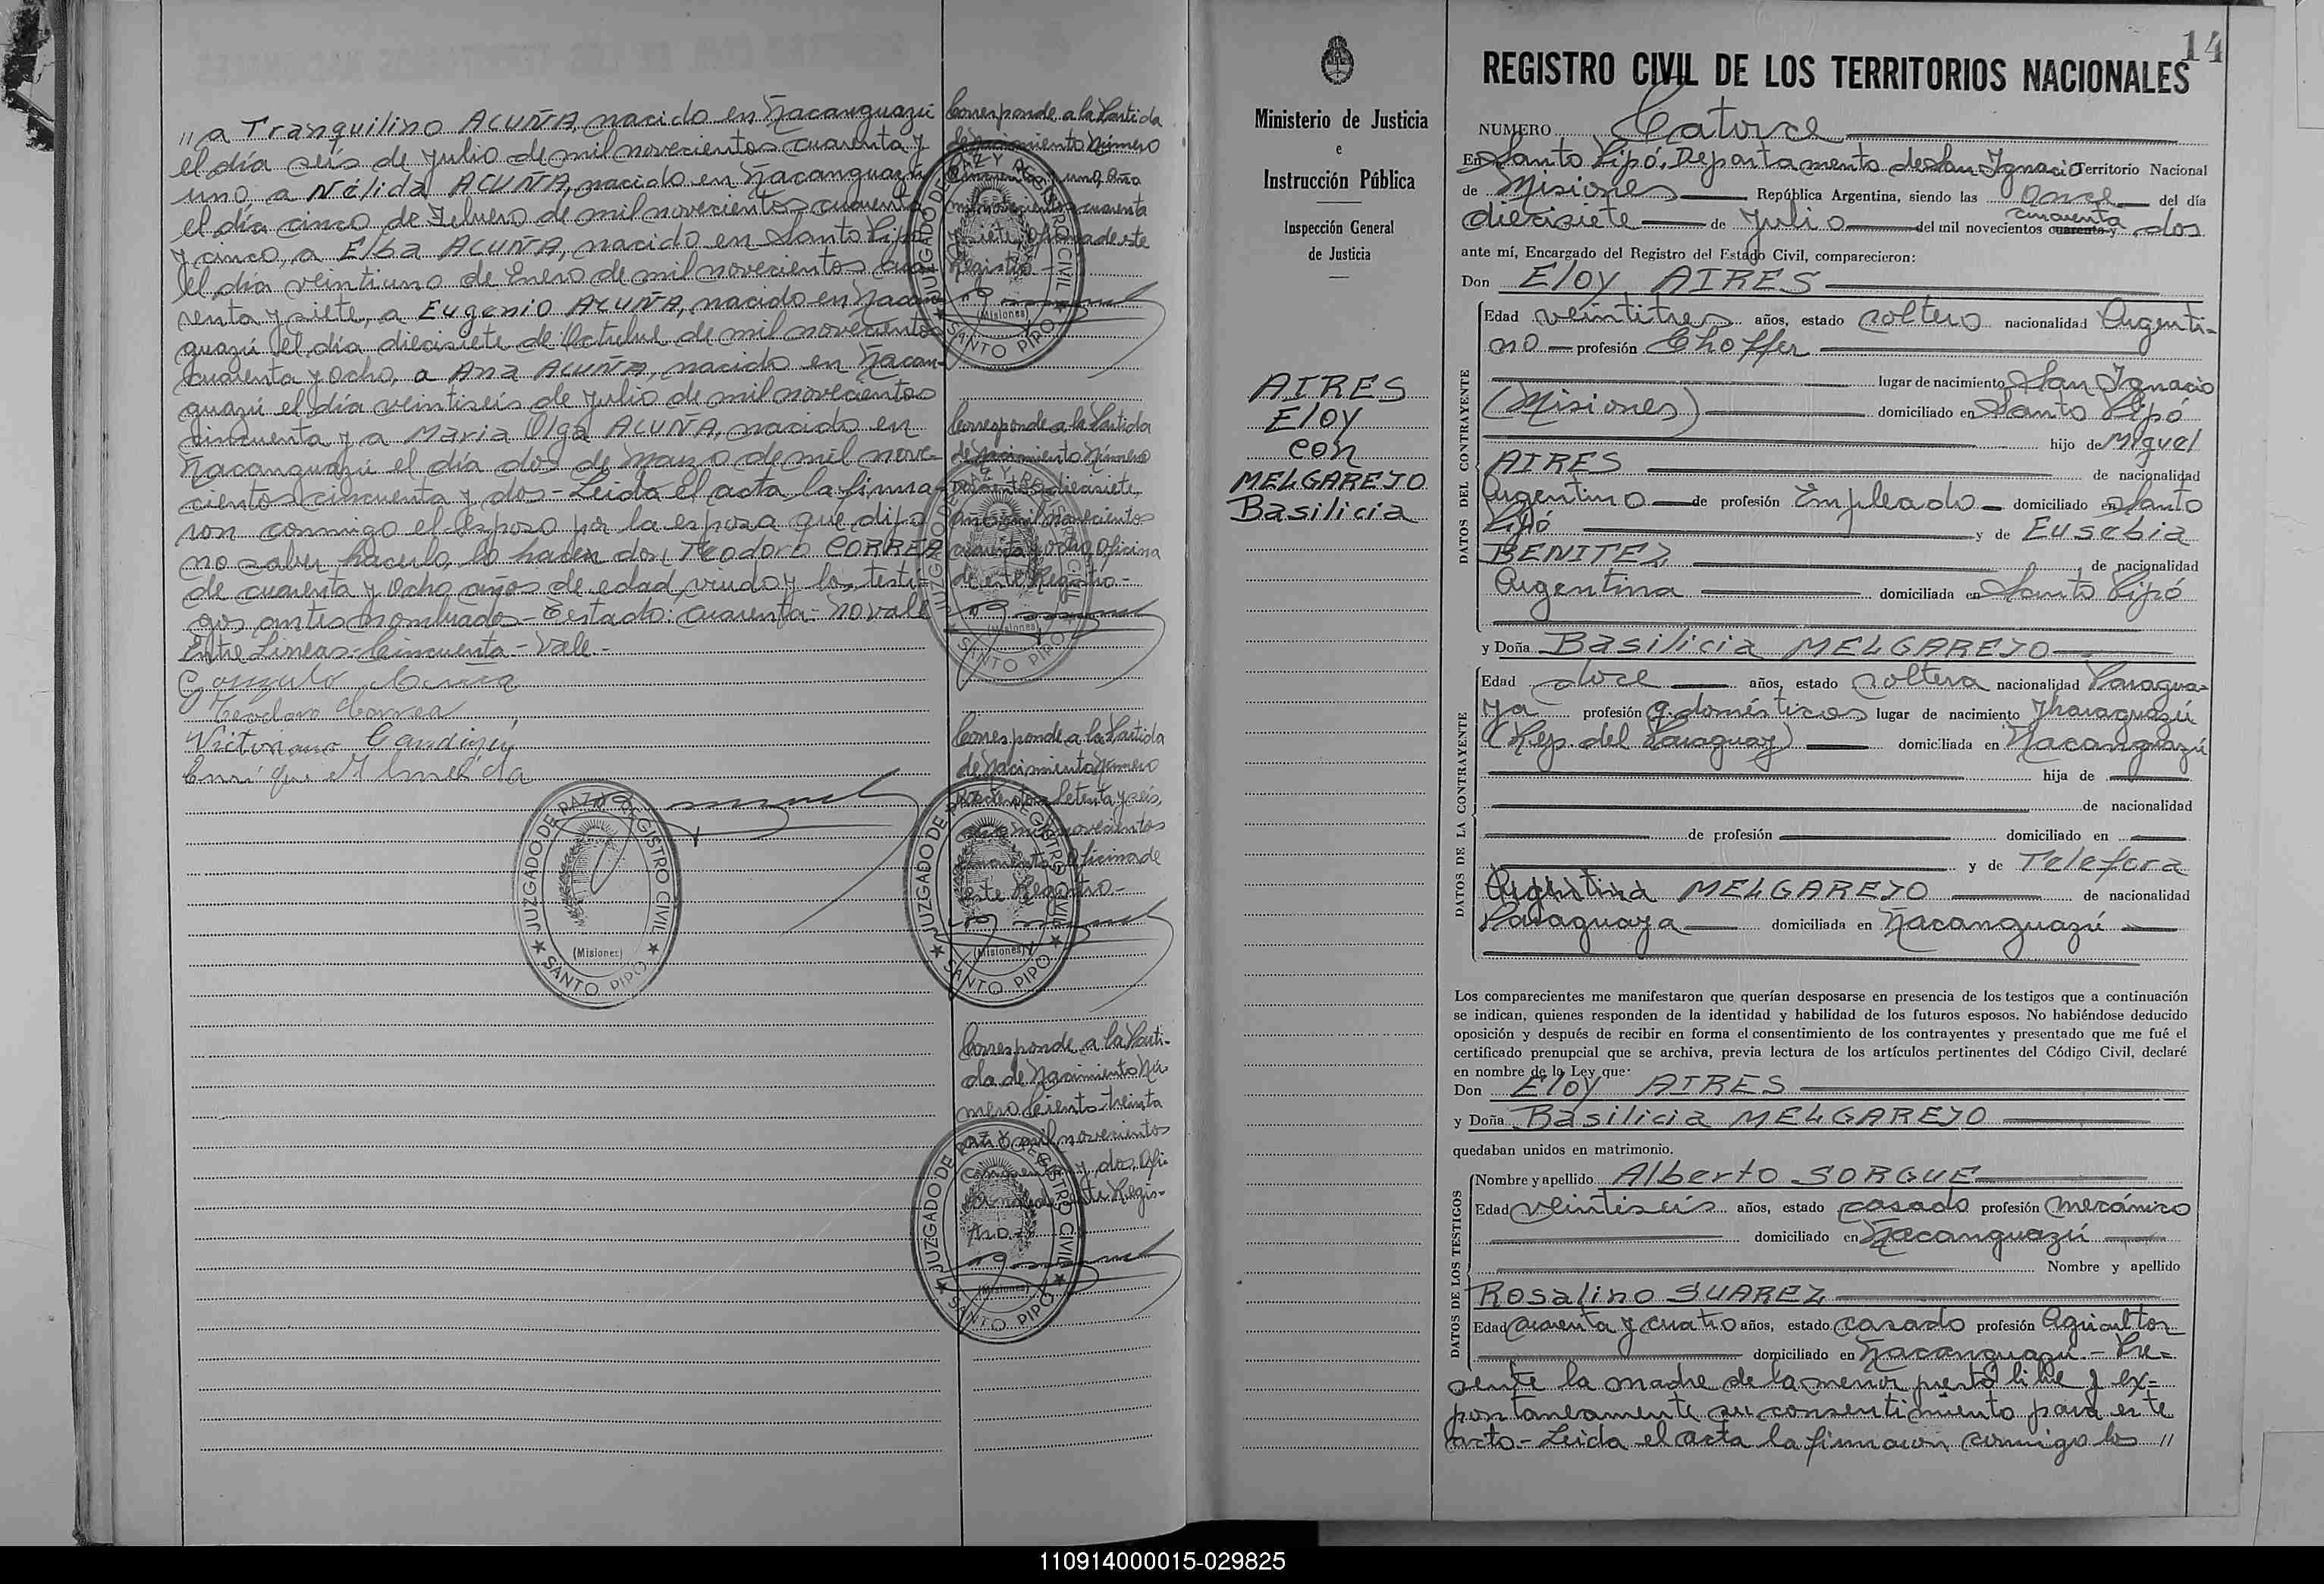 // a Tranquilino ACUÑA, nacido en Ñacanguazú
el día seis de Julio de mil novecientos cuarenta y
uno, a Nélida ACUÑA, nacido en Ñacanguazú
el día cinco de Febrero de mil novecientos cuarenta
y cinco, a Elba ACUÑA, nacido en Santo Pipó
el día veintiuno de Enero de mil novecientos cua-
renta y siete, a Eugenio ACUÑA, nacido en Ñacan-
guazú el día diecisiete de Octubre de mil novecientos
cuarenta y ocho, a Ana ACUÑA, nacido en Ñacan-
guazú el día veintiseis de Julio de mil novecientos
cincuenta y a Maria Olga ACUÑA, nacido en
Ñacanguazú el día dos de Marzo de mil nove-
cientos cincuenta y dos - Leida el acta, la firma-
ron conmigo el esposo por la esposa que dijo
no saber hacerlo, lo hacen don Teodoro CORREA
de cuarenta y ocho años de edad, viudo y los testi-
gos antes nombrados - Testado: cuarenta - No vale
Entre Lineas - Cincuenta - Vale -
Gonzalo Acuña
Teodoro Correa
Victoriano
Enrique Almeida
JUZGADO DE PAZ Y REGISTRO CIVIL
(Misiones)
SANTO PIPO
Corresponde a la Partida
de Nacimiento Número
cincuenta y uno, año
mil novecientos cuarenta
y siete, Oficina de este
Registro -
JUZGADO DE PAZ Y REGISTRO CIVIL
(Misiones)
SANTO PIPO
Corresponde a la Partida
de Nacimiento Número
diecisiete,
año mil novecientos
cuarenta y ocho, Oficina
de este Registro -
JUZGADO DE PAZ Y REGISTRO CIVIL
(Misiones)
SANTO PIPO
Corresponde a la Partida
de Nacimiento Número
setenta y seis,
año mil novecientos
cincuenta, Oficina de
este Registro -
JUZGADO DE PAZ Y REGISTRO CIVIL
(Misiones)
SANTO PIPO
Corresponde a la Parti-
da de Nacimiento Nú-
mero Ciento treinta
año mil novecientos
cincuenta y dos, Ofi-
cina de este Regis-
tro -
JUZGADO DE PAZ Y REGISTRO CIVIL
(Misiones)
SANTO PIPO
Ministerio de Justicia
e
Instrucción Pública
Inspección General
de Justicia
AIRES
Eloy
con
MELGAREJO
Basilicia
14
REGISTRO CIVIL DE LOS TERRITORIOS NACIONALES
NUMERO Catorce
En Santo Pipó, Departamento de San Ignacio Territorio Nacional
de Misiones República Argentina, siendo las once del día
diecisiete de Julio del mil novecientos cuarenta y cincuenta dos
ante mí, Encargado del Registro del Estado Civil, comparecieron:
Don Eloy AIRES
DATOS DEL CONTRAYENTE
Edad veintitres años, estado soltero nacionalidad Argenti-
no profesión Choffer
lugar de nacimiento San Ignacio
(Misiones) domiciliado en Santo Pipó
hijo de Miguel
AIRES de nacionalidad
Argentino de profesión Empleado domiciliado en Santo
Pipó y de Eusebia
BENITEZ de nacionalidad
Argentina domiciliada en Santo Pipó
y Doña Basilicia MELGAREJO
DATOS DE LA CONTRAYENTE
Edad doce años, estado soltera nacionalidad Paragua-
ya profesión q. domésticos lugar de nacimiento Yharaguazú
(Rep. del Paraguay) domiciliada en Ñacanguazú
hija de
de nacionalidad
de profesión domiciliado en
y de Telefora
Argentina MELGAREJO de nacionalidad
Paraguaya domiciliada en Ñacanguazú
Los comparecientes me manifestaron que querían desposarse en presencia de los testigos que a continuación
se indican, quienes responden de la identidad y habilidad de los futuros esposos. No habiéndose deducido
oposición y después de recibir en forma el consentimiento de los contrayentes y presentado que me fué el
certificado prenupcial que se archiva, previa lectura de los artículos pertinentes del Código Civil, declaré
en nombre de la Ley que:
Don Eloy AIRES
y Doña Basilicia MELGAREJO
quedaban unidos en matrimonio.
DATOS DE LOS TESTIGOS
Nombre y apellido Alberto SORGUE
Edad veintiseis años, estado casado profesión mecánico
domiciliado en Ñacanguazú
Nombre y apellido
Rosalino SUAREZ
Edad cuarenta y cuatro años, estado casado profesión Agricultor
domiciliado en Ñacanguazú - Pre-
sente la madre de la menor prestó libre y ex-
pontaneamente su consentimiento para este
acto - Leida el acta la firmaron conmigo los //
110914000015-029825